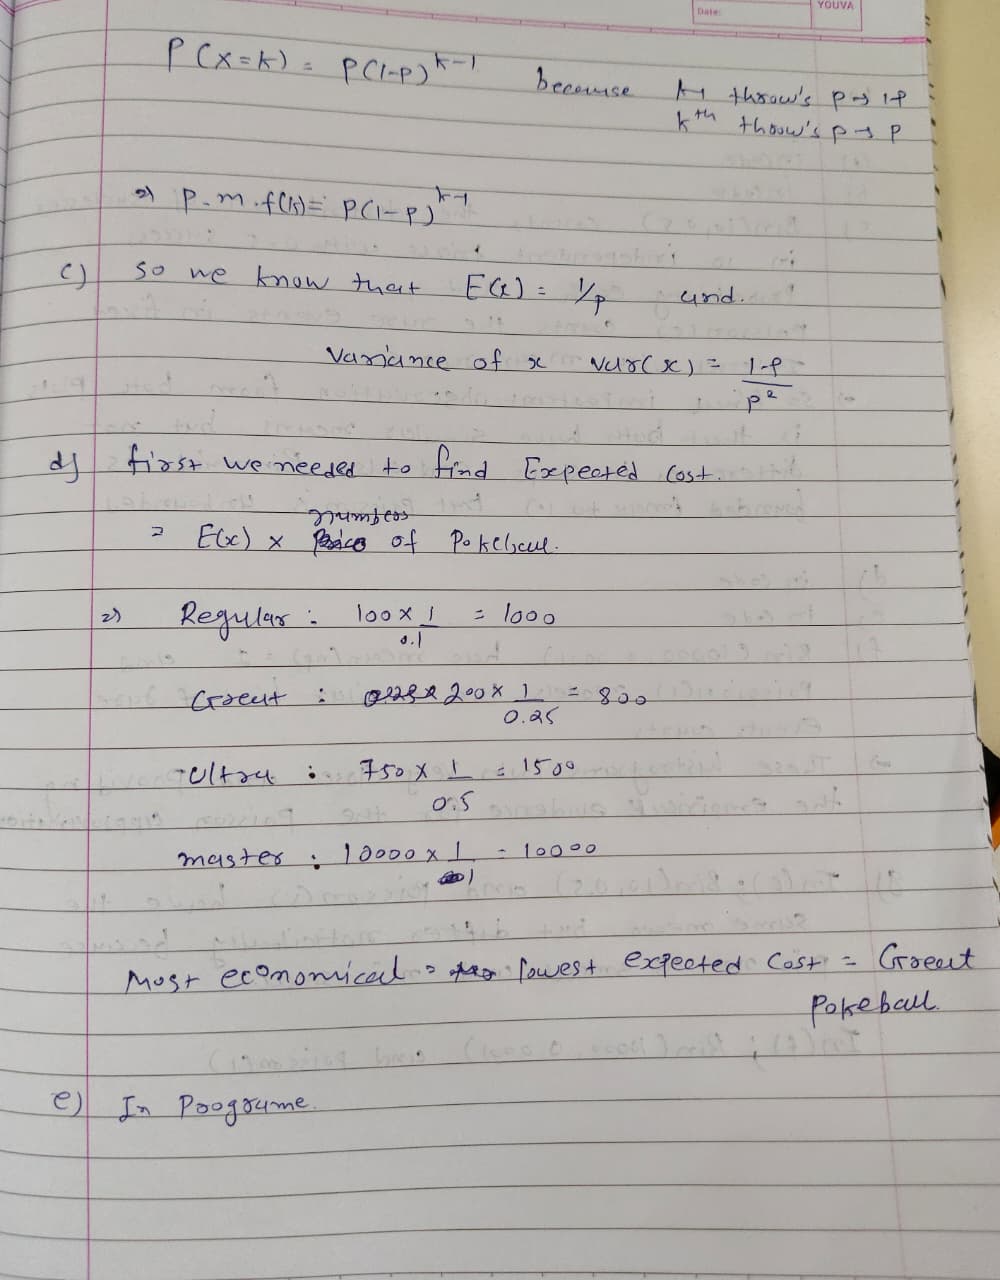 Date:
YOUVA
P(x=k) = p(1-p)^k-1 because k-1 throw's p → 1-p
k^th throw's p → p
⇒ p.m.f(k) = p(1-p)^k-1
c) so we know that E(x) = 1/p and.
Variance of x var(x) = 1-p / p²
d) first we needed to find Expected Cost.
numbers
= E(x) × Price of Pokeball.
⇒ Regular : 100 × 1/0.1 = 1000
Great : 200 × 1/0.25 = 800
Ultra : 750 × 1/0.5 = 1500
master : 10000 × 1/1 = 10000
Most economical = lowest expected Cost = Great
Pokeball.
e) In Programe.